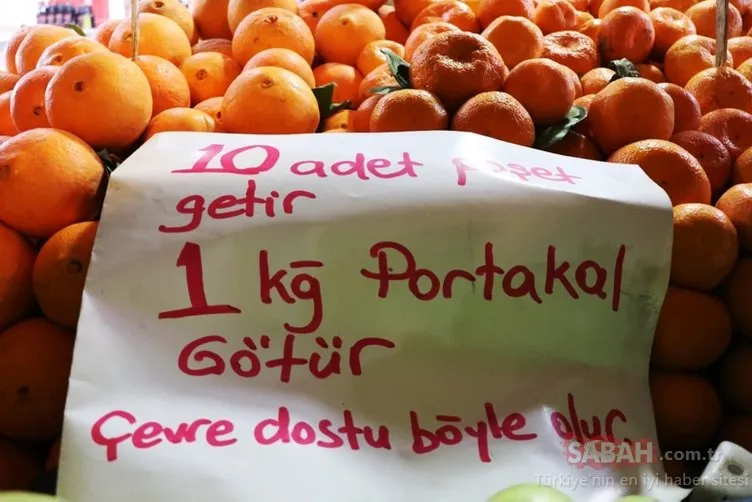 10 adet poşet
getir
1 kğ Portakal
Götür
Çevre dostu böyle olur.
SABAH.com.tr
Türkiye'nin en iyi haber sitesi